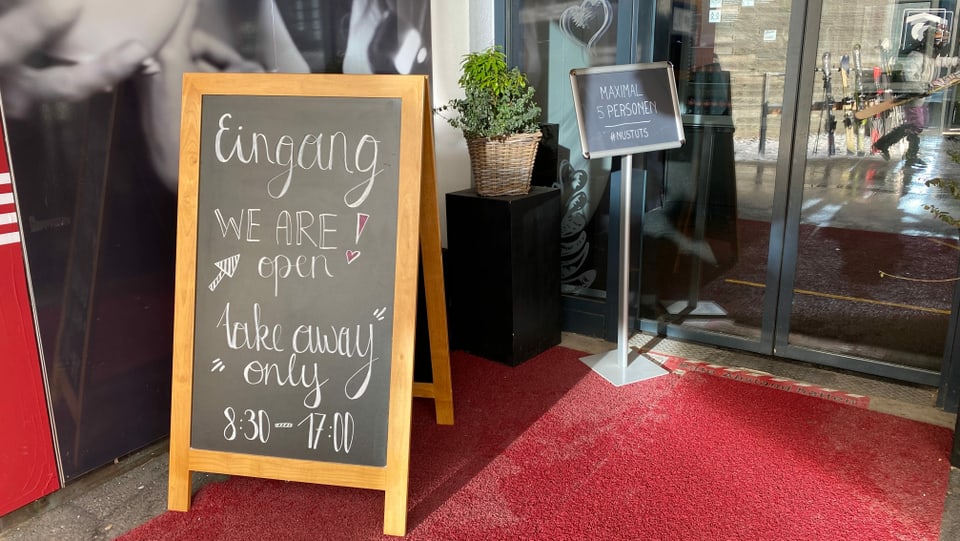 Eingang
WE ARE!
open
"take away"
only
8:30 - 17:00
MAXIMAL
5 PERSONEN
#NUSTUTS